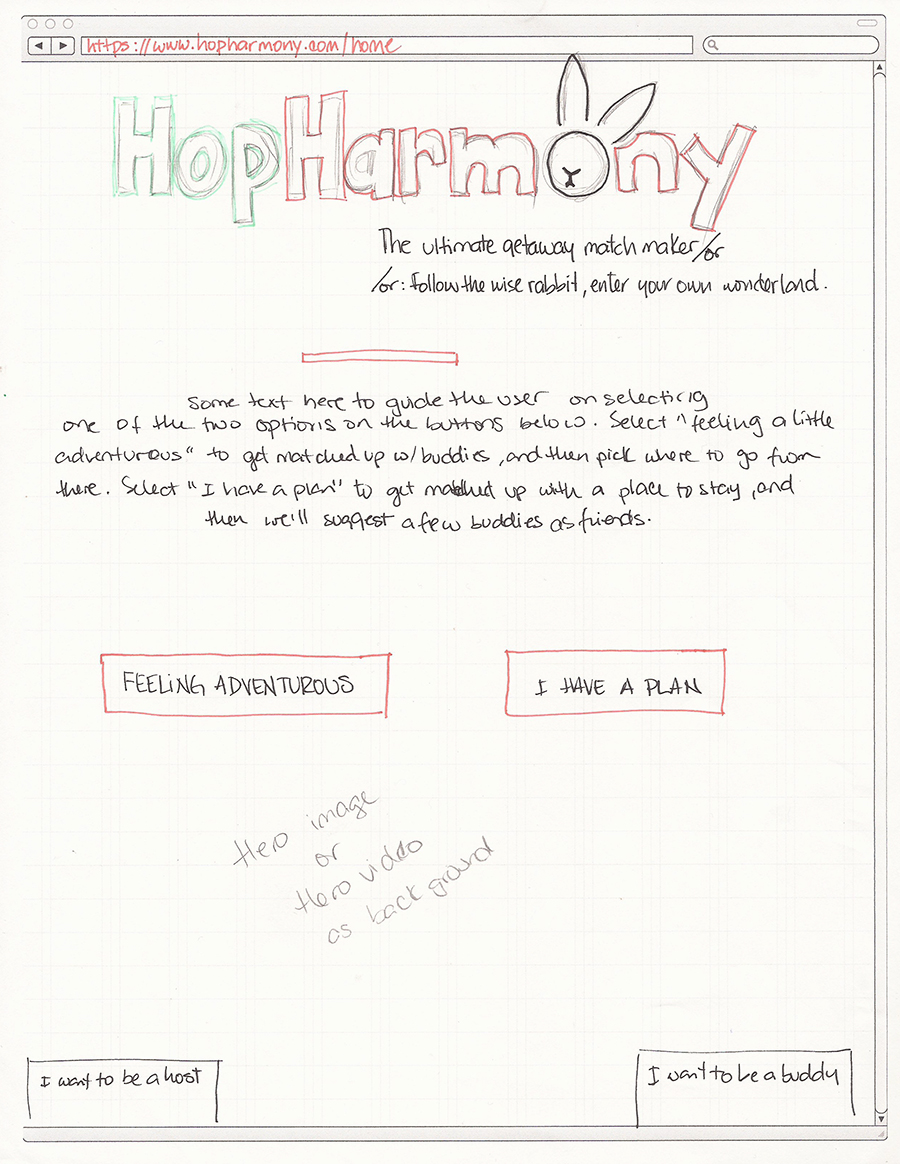 https://www.hopharmony.com/home
HopHarmony
The ultimate getaway match maker/or
/or: Follow the wise rabbit, enter your own wonderland.
Some text here to guide the user on selecting
one of the two options on the buttons below. Select "feeling a little
adventurous" to get matched up w/buddies, and then pick where to go from
there. Select "I have a plan" to get matched up with a place to stay, and
then we'll suggest a few buddies as friends.
FEELING ADVENTUROUS
I HAVE A PLAN
Hero image
or
Hero video
as background
I want to be a host
I want to be a buddy